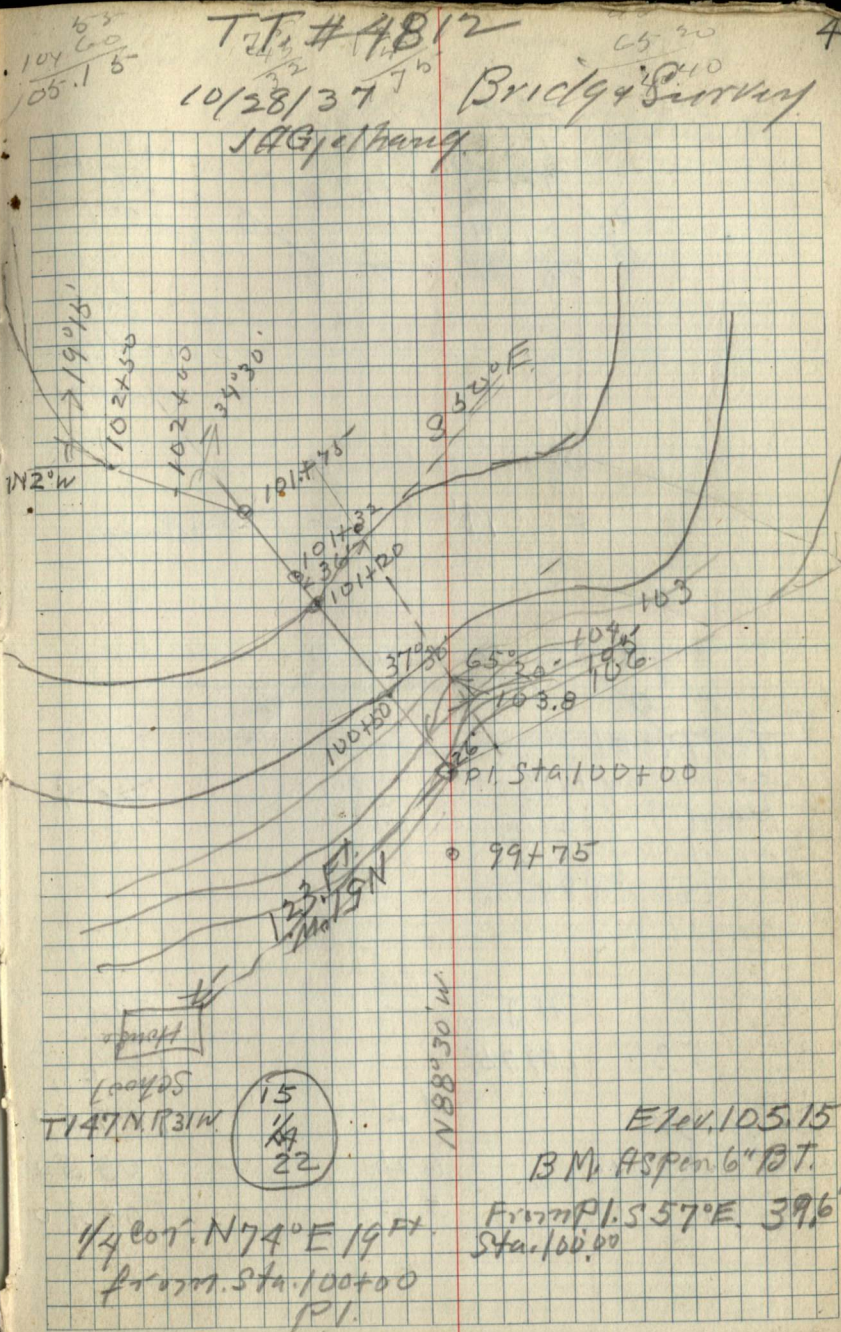 T.T. #4812
4
10/28/37
Bridge Survey
104 60
105.15
19°15'
102+50
102+00
34°30'
S 50° E
N2°W
101+75
101+32
36'
101+20
103
37°30'
65°
20'
104
105
106
103.8
100+50
26'
P.I. Sta. 100+00
99+75
123. Ft.
N
N88°30'W
House
School
T147N.R31W.
15
1/4
22
Elev. 105.15
B.M. Aspen 6" B.T.
From P.I. S57°E. 39.6'
Sta. 100.00
1/4 cor. N74°E 19 Ft.
from. Sta. 100+00
P.I.